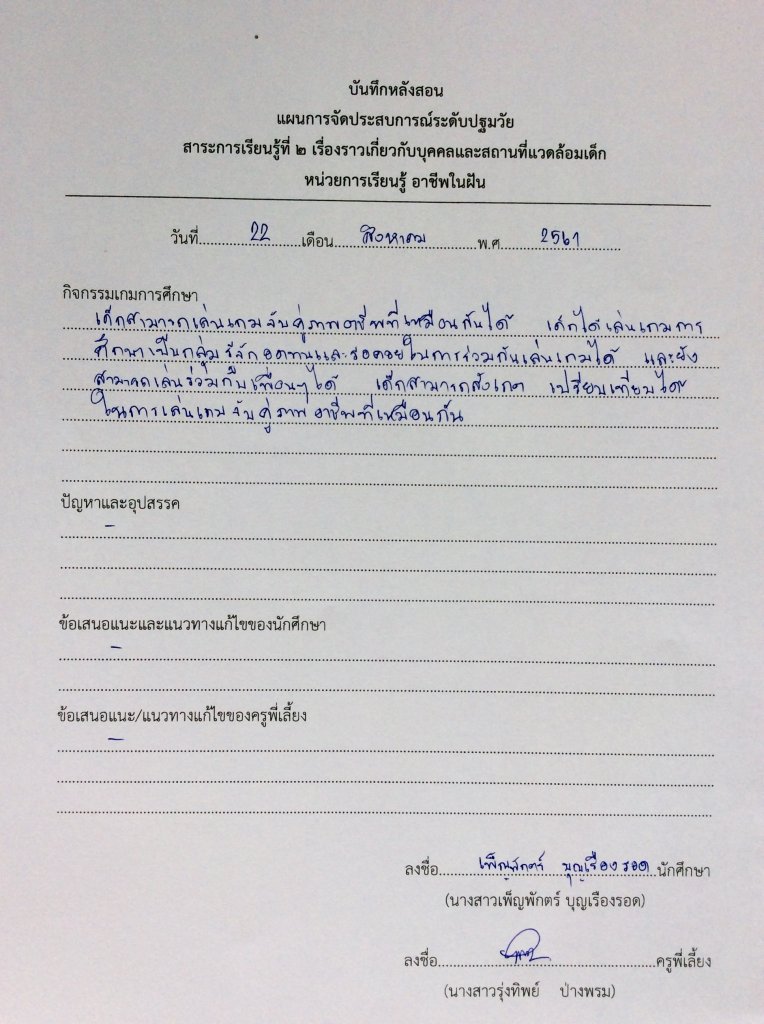 บันทึกหลังสอน
แผนการจัดประสบการณ์ระดับปฐมวัย
สาระการเรียนรู้ที่ ๒ เรื่องราวเกี่ยวกับบุคคลและสถานที่แวดล้อมเด็ก
หน่วยการเรียนรู้ อาชีพในฝัน
วันที่ 22 เดือน สิงหาคม พ.ศ 2561
กิจกรรมเกมการศึกษา
เด็กสามารถเล่นเกมจับคู่ภาพอาชีพที่เหมือนกันได้ เด็กได้เล่นเกมการ
ศึกษาเป็นกลุ่ม รู้จักอดทนและรอคอยในการร่วมกันเล่นเกมได้ และยัง
สามารถเล่นร่วมกับเพื่อนๆได้ เด็กสามารถสังเกต เปรียบเทียบได้
ในการเล่นเกมจับคู่ภาพอาชีพที่เหมือนกัน
ปัญหาและอุปสรรค
-
ข้อเสนอแนะและแนวทางแก้ไขของนักศึกษา
-
ข้อเสนอแนะ/แนวทางแก้ไขของครูพี่เลี้ยง
-
ลงชื่อ เพ็ญพักตร์ บุญเรืองรอด นักศึกษา
(นางสาวเพ็ญพักตร์ บุญเรืองรอด)
ลงชื่อ ครูพี่เลี้ยง
(นางสาวรุ่งทิพย์ ป่างพรม)